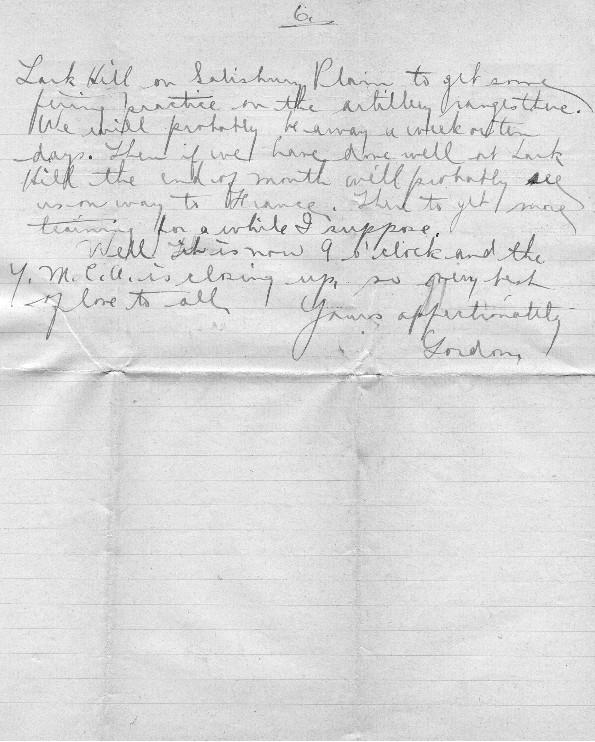 6.
Lark Hill on Salisbury Plain to get some
firing practice on the artillery ranges there.
We will probably be away a week or ten
days. Then if we have done well at Lark
Hill the end of month will probably see
us on way to France. Then to get more
training for a while I suppose.
Well it is now 9 o'clock and the
Y.M.C.A. is closing up, so very best
of love to all,
Yours affectionately
Gordon,